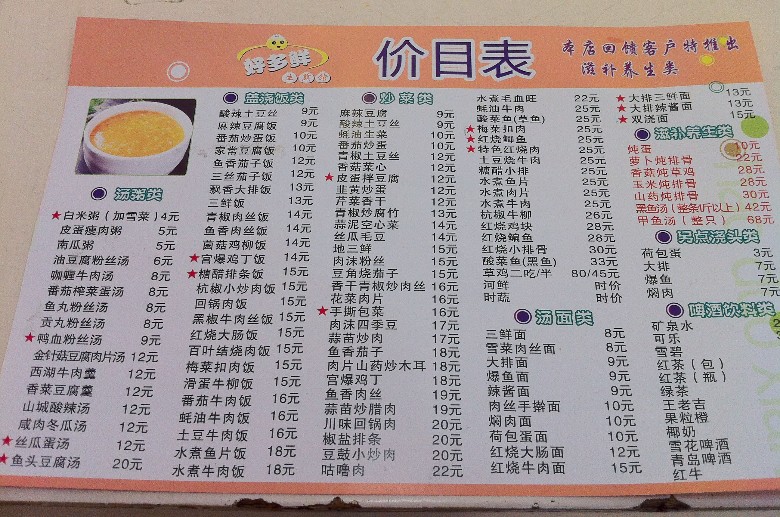 好多鲜
价目表
本店回馈客户特推出
滋补养生类
汤粥类
★白米粥（加雪菜）4元
皮蛋瘦肉粥 5元
南瓜粥 5元
油豆腐粉丝汤 6元
咖喱牛肉汤 8元
番茄榨菜蛋汤 8元
鱼丸粉丝汤 8元
贡丸粉丝汤 8元
★鸭血粉丝汤 9元
金针菇豆腐肉片汤 12元
西湖牛肉羹 12元
香菜豆腐羹 12元
山城酸辣汤 12元
咸肉冬瓜汤 12元
★丝瓜蛋汤 12元
★鱼头豆腐汤 20元
盖浇饭类
酸辣土豆丝 9元
麻辣豆腐饭 9元
番茄炒蛋饭 10元
家常豆腐饭 10元
鱼香茄子饭 12元
三丝茄子饭 12元
飘香大排饭 13元
三鲜饭 13元
青椒肉丝饭 14元
鱼香肉丝饭 14元
菌菇鸡柳饭 14元
★宫爆鸡丁饭 14元
★糖醋排条饭 15元
杭椒小炒肉饭 15元
回锅肉饭 15元
黑椒牛肉丝饭 15元
红烧大肠饭 15元
百叶结烧肉饭 15元
梅菜扣肉饭 15元
滑蛋牛柳饭 15元
番茄牛肉饭 16元
蚝油牛肉饭 16元
土豆牛肉饭 16元
水煮鱼片饭 18元
水煮牛肉饭 18元
炒菜类
麻辣豆腐 9元
酸辣土豆丝 9元
蚝油生菜 10元
番茄炒蛋 10元
青椒土豆丝 12元
香菇菜心 12元
★皮蛋拌豆腐 12元
韭黄炒蛋 12元
芹菜香干 12元
青椒炒腐竹 13元
蒜泥空心菜 14元
丝瓜毛豆 14元
地三鲜 15元
肉沫粉丝 15元
豆角烧茄子 15元
香干青椒炒肉丝 16元
花菜肉片 16元
★手撕包菜 16元
肉沫四季豆 17元
蒜苗炒肉 17元
鱼香茄子 18元
肉片山药炒木耳 18元
宫爆鸡丁 18元
鱼香肉丝 19元
蒜苗炒腊肉 19元
川味回锅肉 20元
椒盐排条 20元
豆鼓小炒肉 20元
咕噜肉 22元
水煮毛血旺 22元
蚝油牛肉 25元
酸菜鱼(草鱼) 25元
★梅菜扣肉 25元
★红烧鲫鱼 25元
★特色红烧肉 25元
土豆烧牛肉 25元
糖醋小排 25元
水煮鱼片 25元
水煮肉片 25元
水煮牛肉 25元
杭椒牛柳 26元
红烧鸡块 28元
红烧鳊鱼 28元
红烧小排骨 30元
酸菜鱼(黑鱼) 33元
草鸡二吃/半 80/45元
河鲜 时价
时蔬 时价
汤面类
三鲜面 8元
雪菜肉丝面 8元
大排面 9元
爆鱼面 9元
辣酱面 9元
肉丝手擀面 10元
焖肉面 10元
荷包蛋面 10元
红烧大肠面 12元
红烧牛肉面 15元
★大排三鲜面 13元
★大排辣酱面 13元
★双浇面 15元
滋补养生类
炖蛋 10元
萝卜炖排骨 22元
香菇炖草鸡 28元
玉米炖排骨 28元
山药炖排骨 30元
黑鱼汤（整条1斤以上）42元
甲鱼汤（整只） 68元
另点浇头类
荷包蛋 3元
大排 7元
爆鱼 7元
焖肉 7元
啤酒饮料类
矿泉水
可乐
雪碧
红茶（包）
红茶（瓶）
绿茶
王老吉
果粒橙
椰奶
雪花啤酒
青岛啤酒
红牛